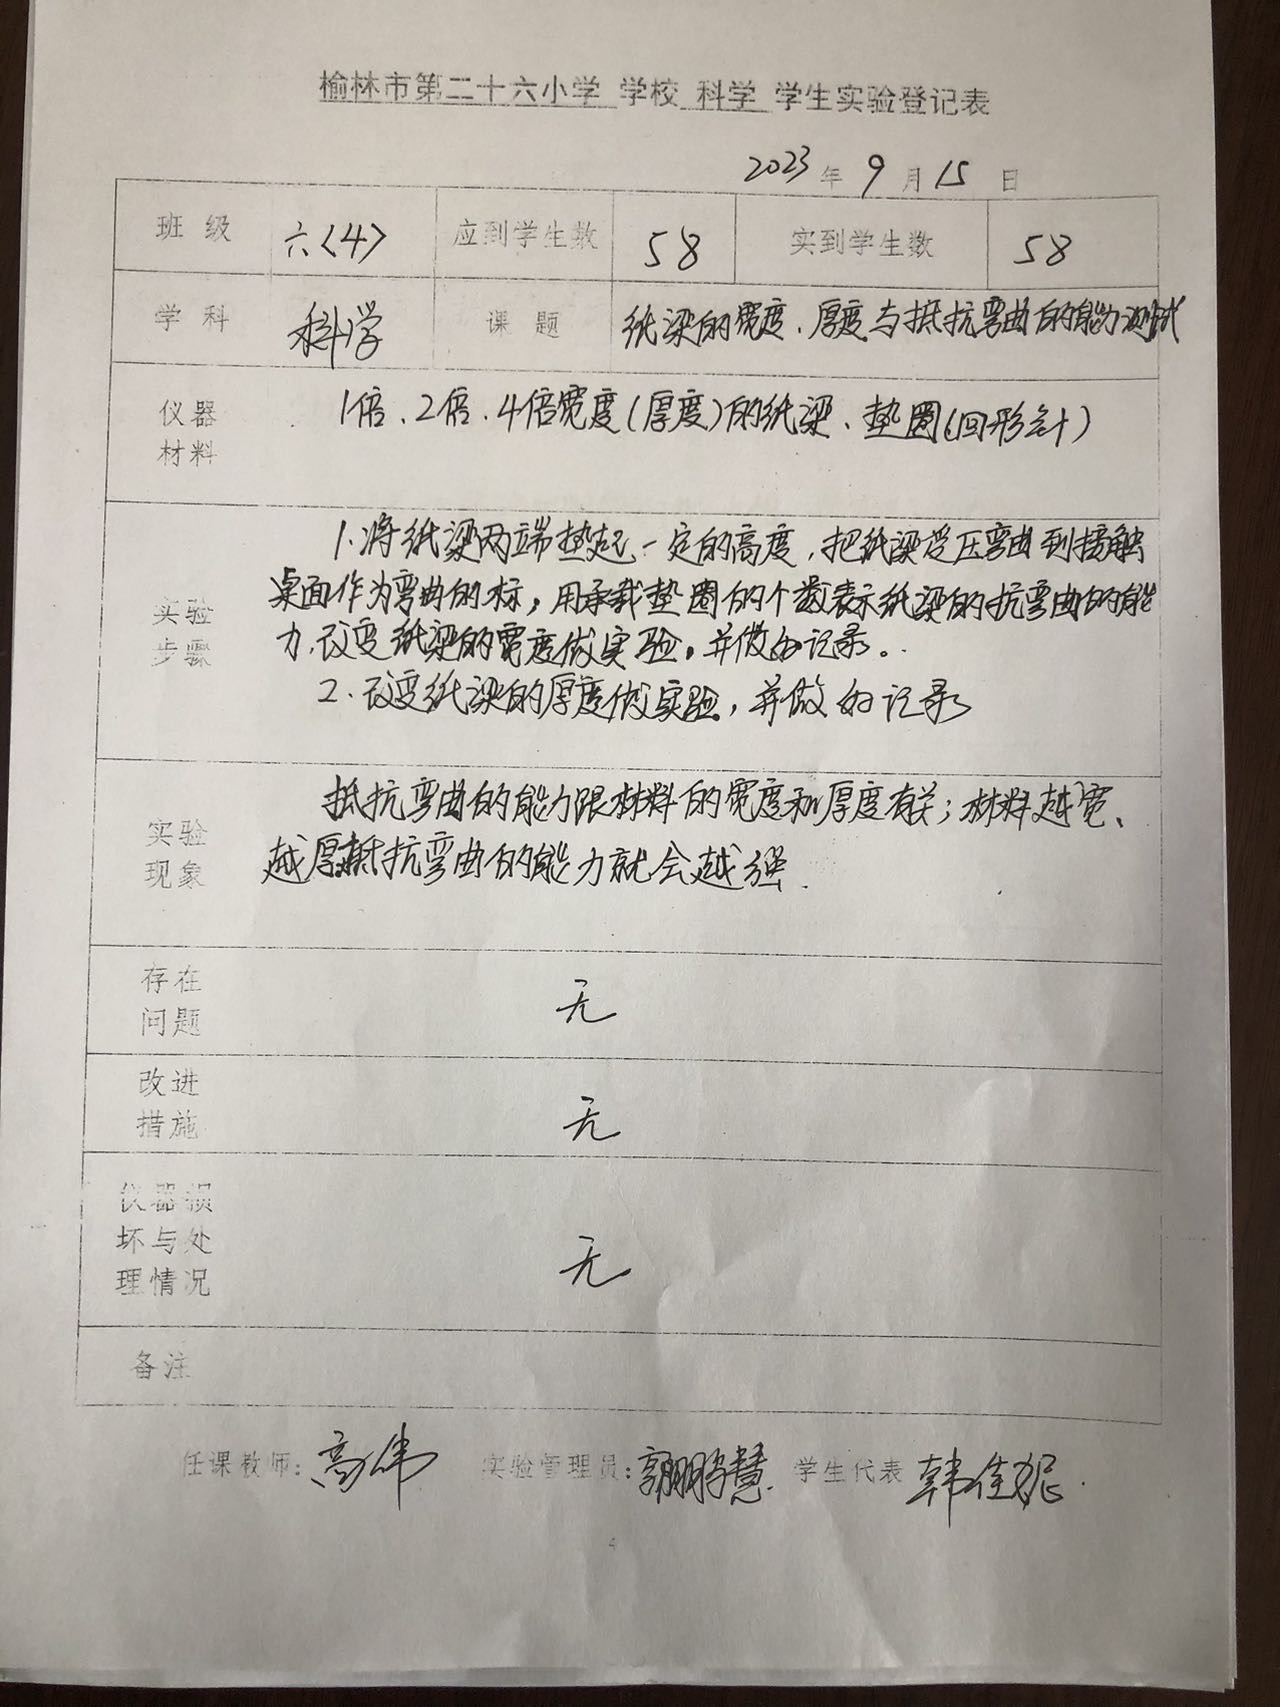 榆林市第二十六小学 学校 科学 学生实验登记表
2023 年 9 月 15 日
班 级 六〈4〉 应到学生数 58 实到学生数 58
学 科 科学 课 题 纸梁的宽度、厚度与抵抗弯曲的能力测试
仪器
材料
1倍、2倍、4倍宽度(厚度)的纸梁、垫圈(回形针)
实验
步骤
1.将纸梁两端垫起一定的高度,把纸梁受压弯曲到接触
桌面作为弯曲的标,用承载垫圈的个数表示纸梁的抗弯曲的能
力,改变纸梁的宽度做实验,并做的记录。
2.改变纸梁的厚度做实验,并做的记录
实验
现象
抵抗弯曲的能力跟材料的宽度和厚度有关;材料越宽、
越厚抵抗弯曲的能力就会越强.
存在
问题
无
改进
措施
无
仪器损
坏与处
理情况
无
备注
任课教师: 高伟 实验管理员: 慧 学生代表 韩佳妮
4